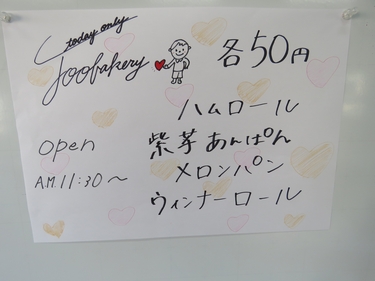 today only
Joobakery
各50円
ハムロール
open
紫芋あんぱん
メロンパン
A.M.11:30〜
ウィンナーロール